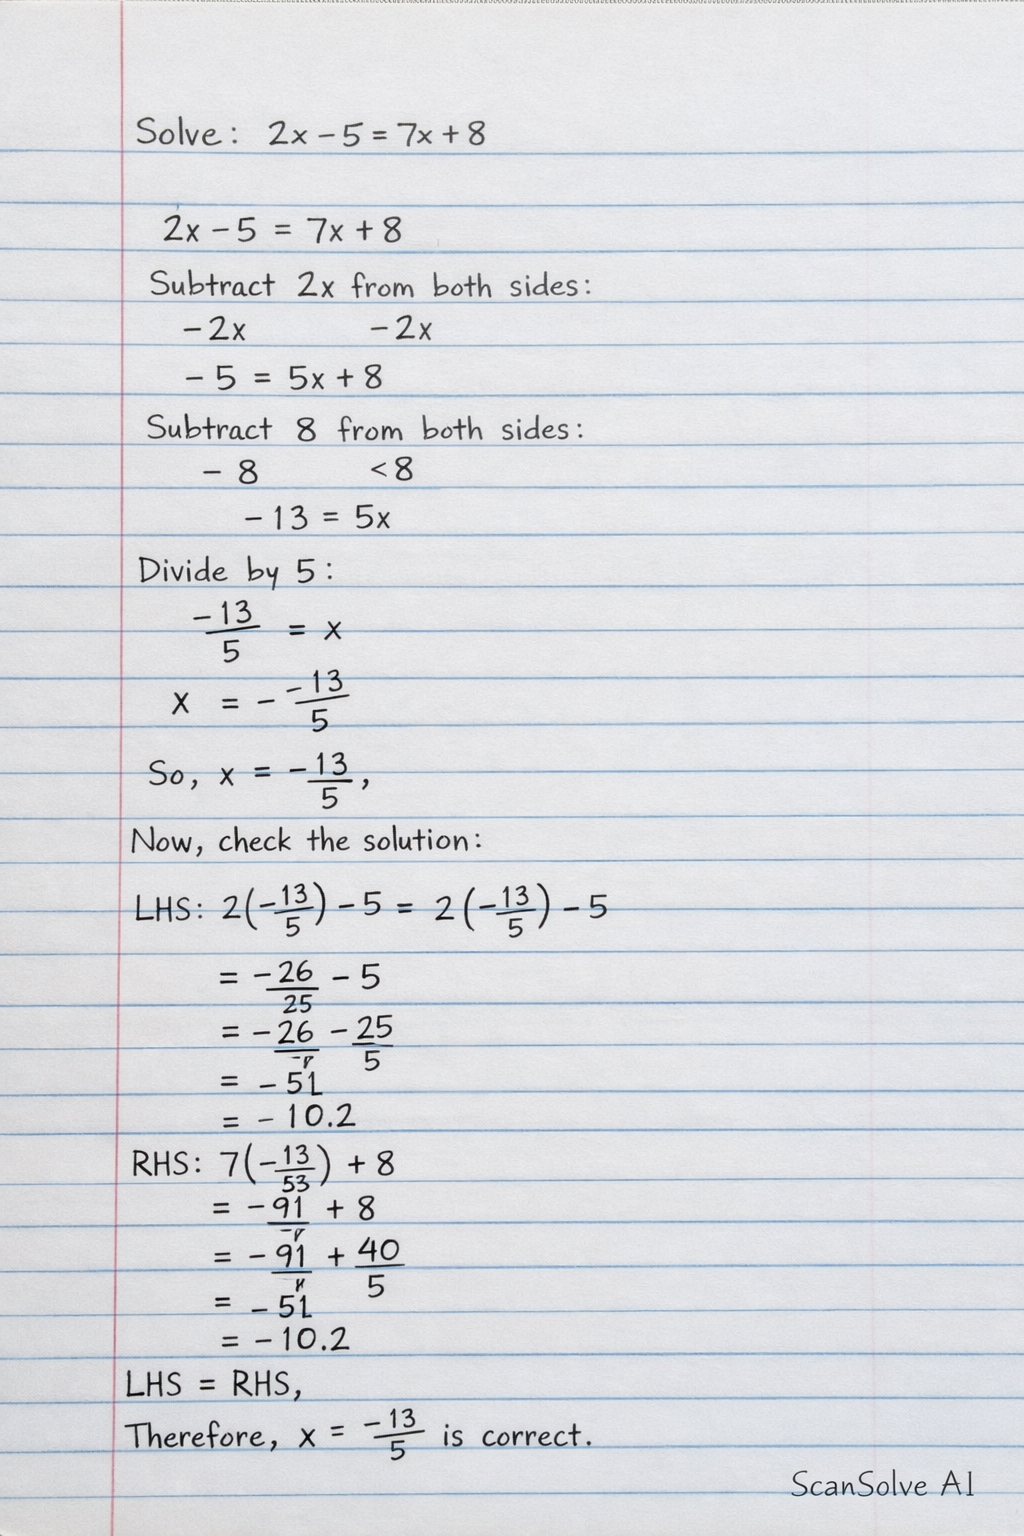 Solve: 2x - 5 = 7x + 8
2x - 5 = 7x + 8
Subtract 2x from both sides:
-2x -2x
-5 = 5x + 8
Subtract 8 from both sides:
- 8 <8
-13 = 5x
Divide by 5:
-13/5 = x
x = - -13/5
So, x = -13/5,
Now, check the solution:
LHS: 2(-13/5) - 5 = 2(-13/5) - 5
= -26/25 - 5
= -26 - 25/5
= -51
= -10.2
RHS: 7(-13/53) + 8
= -91 + 8
= -91 + 40/5
= -51
= -10.2
LHS = RHS,
Therefore, x = -13/5 is correct.
ScanSolve AI